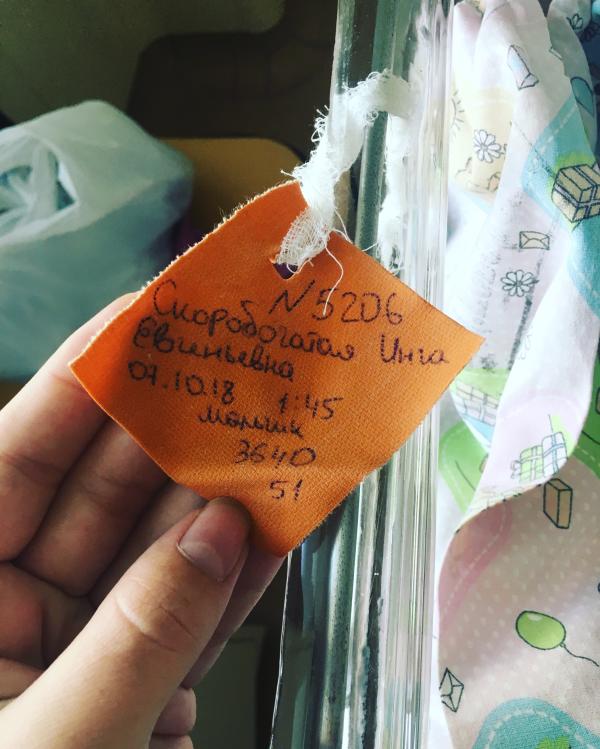 N5206
Скоробогатая Инга
Евгиньевна
07.10.18 1:45
мальчик
3640
51